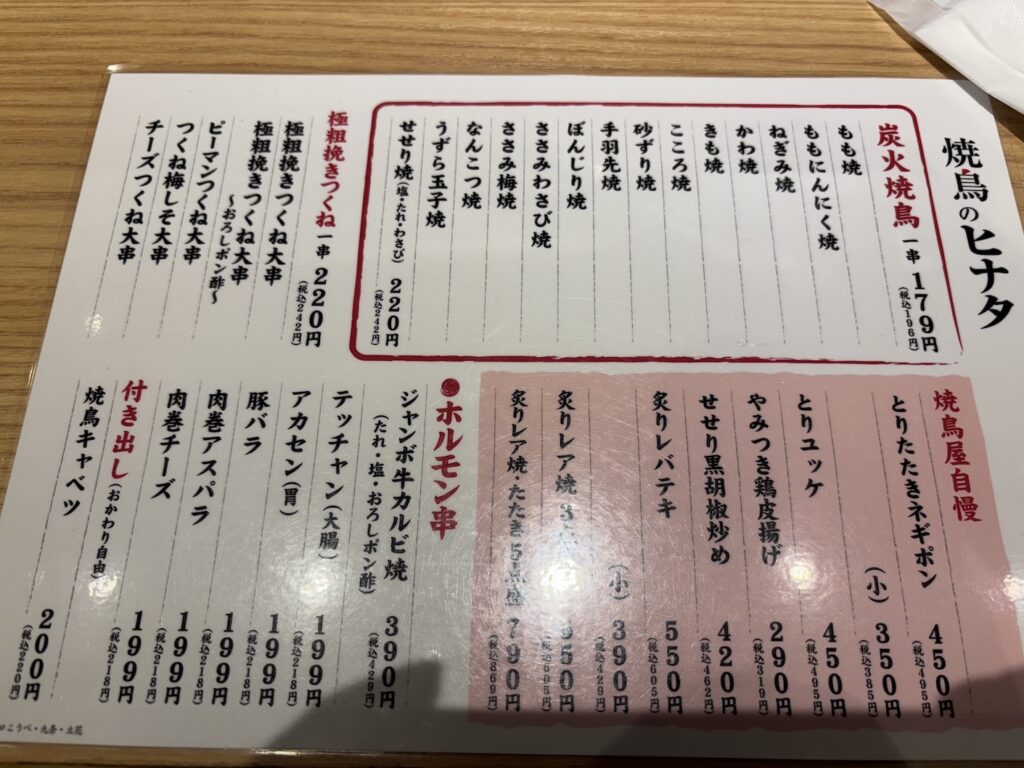 焼鳥のヒナタ
炭火焼鳥 一串 179円
(税込196円)
もも焼
ももにんにく焼
ねぎみ焼
かわ焼
きも焼
こころ焼
砂ずり焼
手羽先焼
ぼんじり焼
ささみわさび焼
ささみ梅焼
なんこつ焼
うずら玉子焼
せせり焼(塩・たれ・わさび) 220円
(税込242円)
極粗挽きつくね 一串 220円
(税込242円)
極粗挽きつくね大串
極粗挽きつくね大串
〜おろしポン酢〜
ピーマンつくね大串
つくね梅しそ大串
チーズつくね大串
焼鳥屋自慢
とりたたきネギポン 450円
(税込495円)
(小) 350円
(税込385円)
とりユッケ 450円
(税込495円)
やみつき鶏皮揚げ 290円
(税込319円)
せせり黒胡椒炒め 420円
(税込462円)
炙りレバテキ 550円
(税込605円)
(小) 390円
(税込429円)
炙りレア焼3 550円
(税込605円)
炙りレア焼・たたき5点盛 790円
(税込869円)
●ホルモン串
ジャンボ牛カルビ焼 390円
(たれ・塩・おろしポン酢) (税込429円)
テッチャン(大腸) 199円
(税込218円)
アカセン(胃) 199円
(税込218円)
豚バラ 199円
(税込218円)
肉巻アスパラ 199円
(税込218円)
肉巻チーズ 199円
(税込218円)
付き出し(おかわり自由)
焼鳥キャベツ 200円
(税込220円)
こうべ・九条・立花